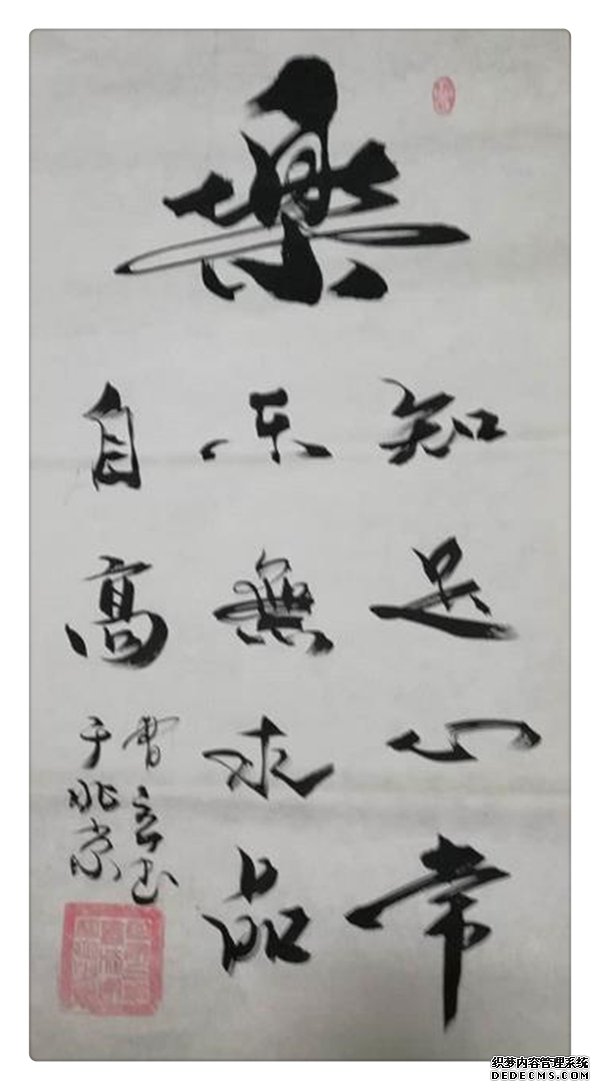 樂
知足心常
乐無求品
自高
曹
于北京
织梦内容管理系统
DEDECMS.COM